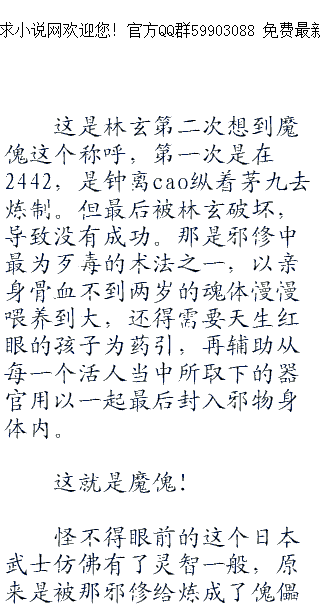 求小说网欢迎您！官方QQ群59903088 免费最新
这是林玄第二次想到魔
傀这个称呼，第一次是在
2442，是钟离cao纵着茅九去
炼制。但最后被林玄破坏，
导致没有成功。那是邪修中
最为歹毒的术法之一，以亲
身骨血不到两岁的魂体慢慢
喂养到大，还得需要天生红
眼的孩子为药引，再辅助从
每一个活人当中所取下的器
官用以一起最后封入邪物身
体内。
这就是魔傀！
怪不得眼前的这个日本
武士仿佛有了灵智一般，原
来是被那邪修给炼成了傀儡